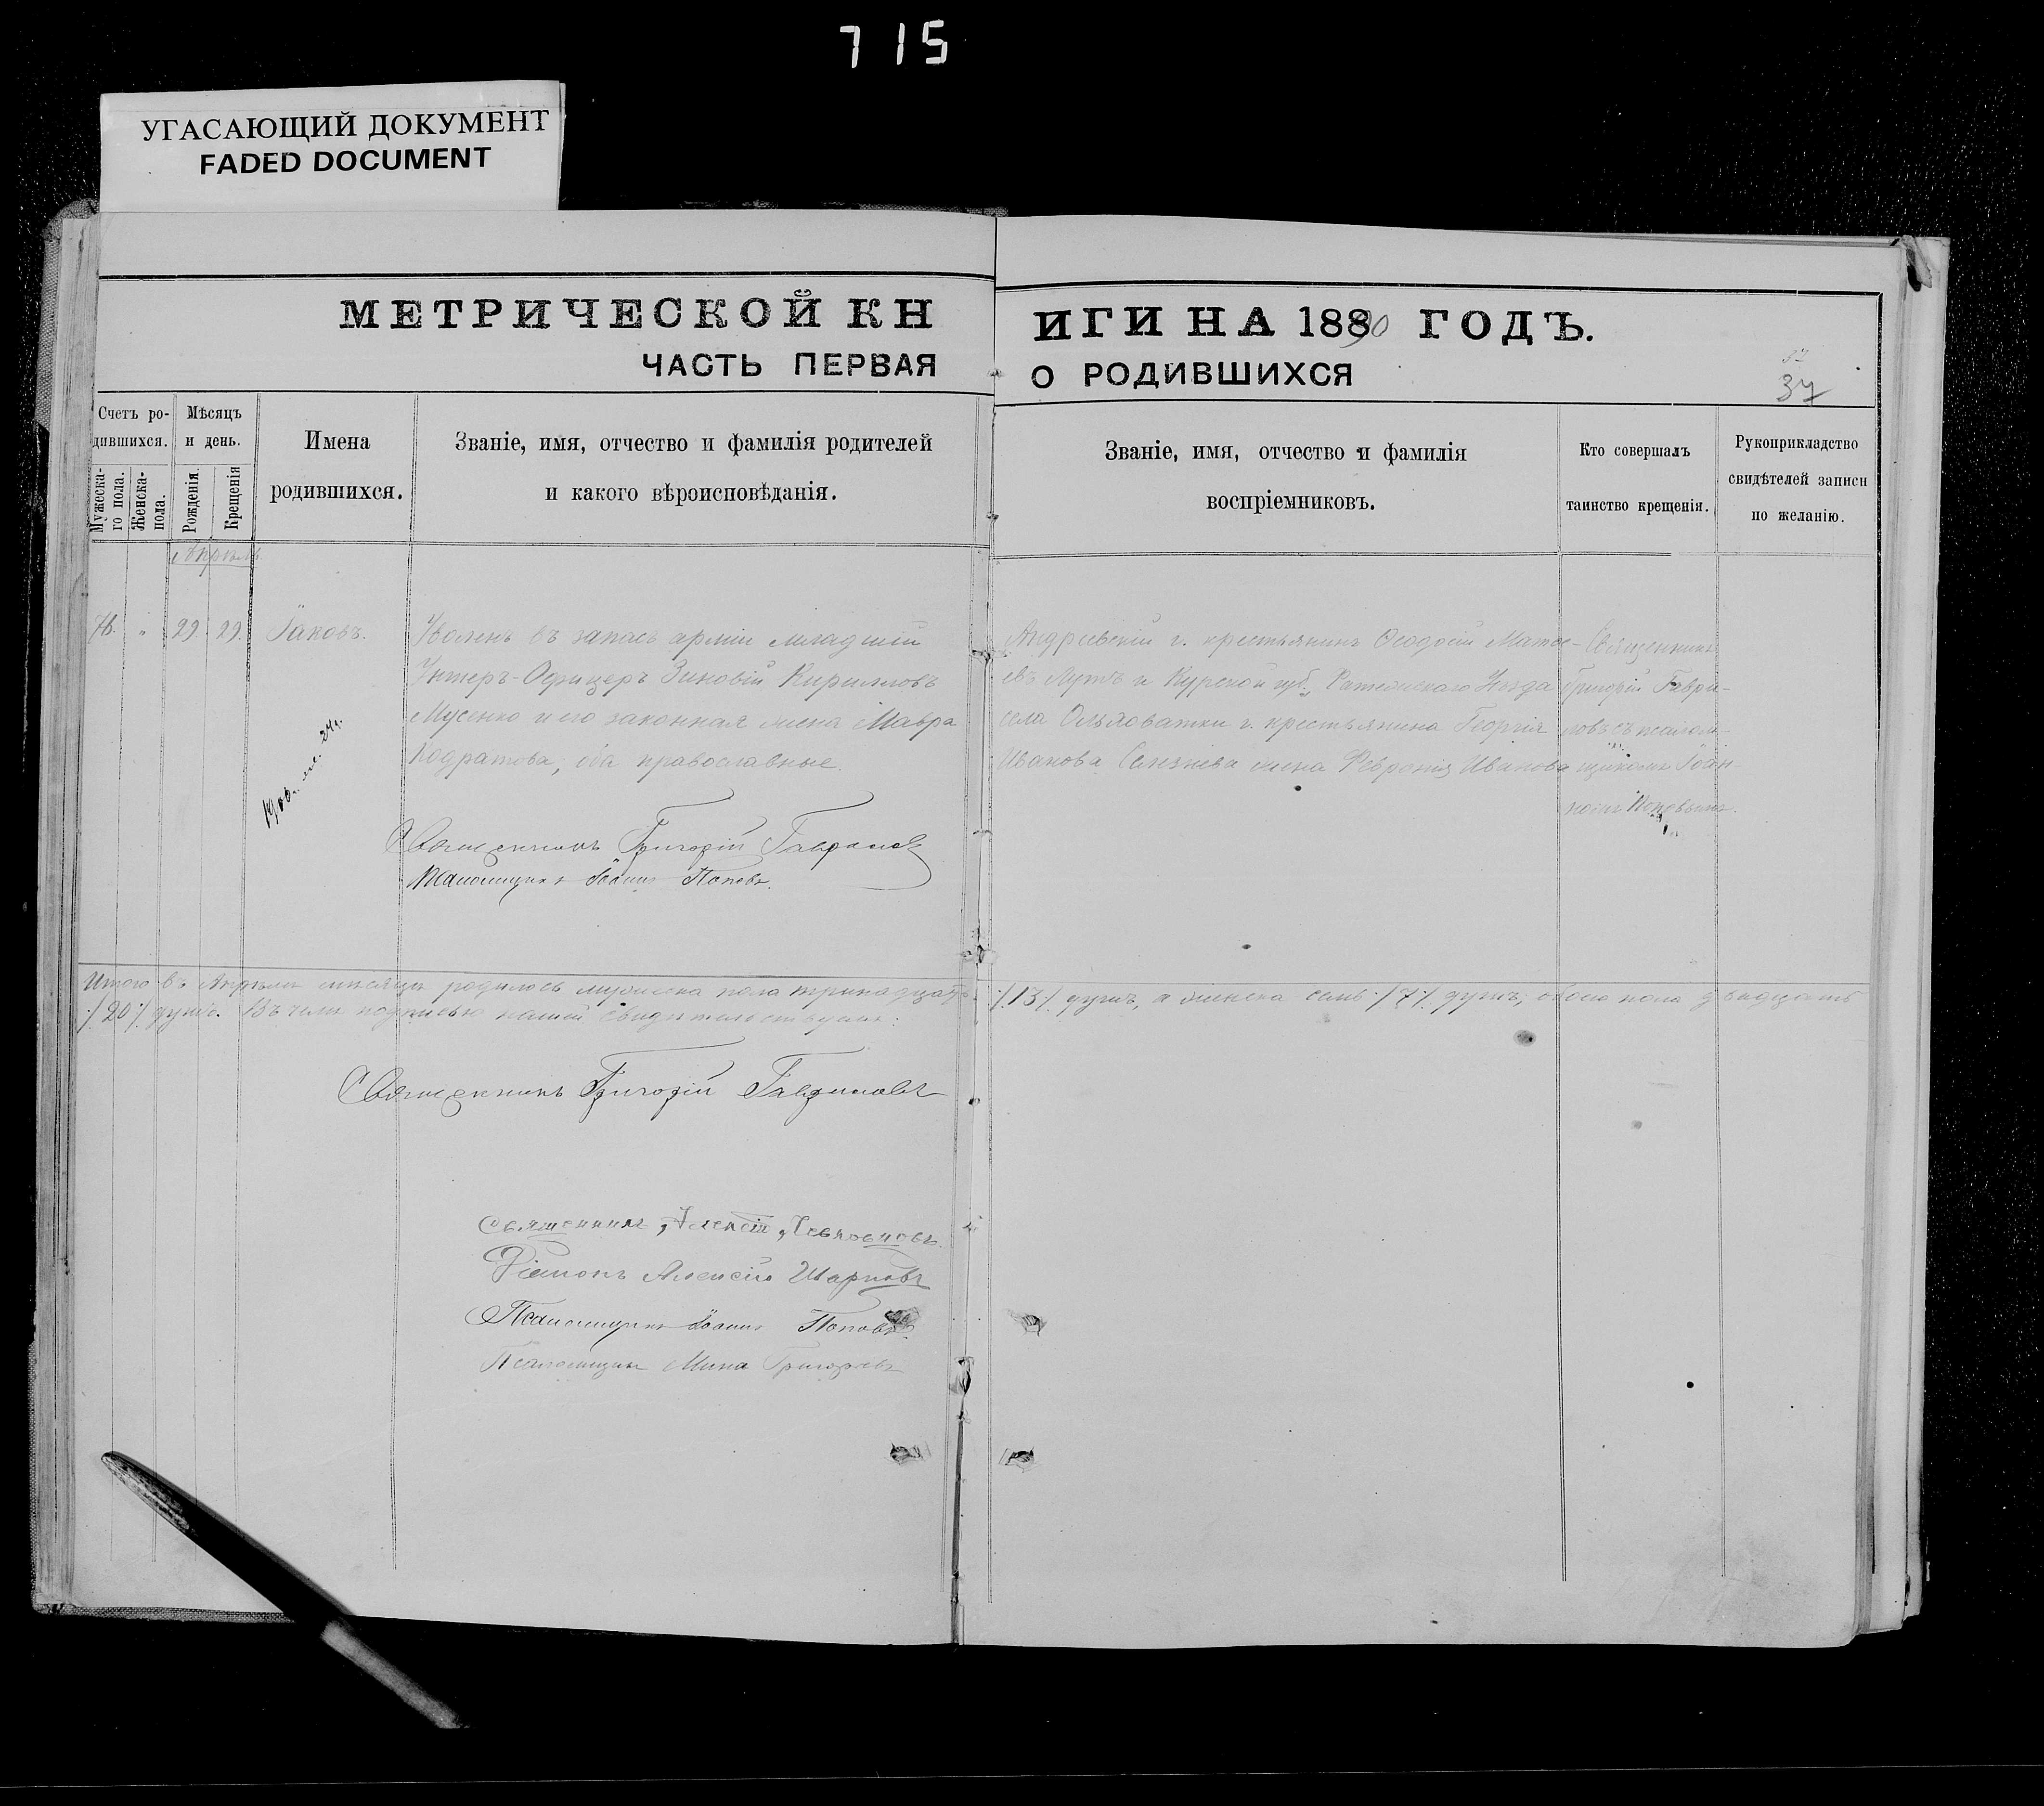 715
УГАСАЮЩИЙ ДОКУМЕНТ
FADED DOCUMENT
МЕТРИЧЕСКОЙ КН
ИГИ НА 1890 ГОДЪ.
ЧАСТЬ ПЕРВАЯ
О РОДИВШИХСЯ
37
Счетъ родившихся.
Мужеска-го пола.
Женска-пола.
Мѣсяцъ и день.
Рожденія.
Крещенія
Имена родившихся.
Званіе, имя, отчество и фамилія родителей
и какого вѣроисповѣданія.
Званіе, имя, отчество и фамилія
воспріемниковъ.
Кто совершалъ
таинство крещенія.
Рукоприкладство
свидѣтелей записи
по желанію.
Апрѣль
76. " 29. 29. Іаковъ.
Уволенъ въ запасъ арміи младшій
Унтеръ-Офицеръ Зиновій Кирилловъ
Мусенко и его законная жена Мавра
Кодратова, оба православные.
Андреевскій г. крестьянинъ Ѳеодосій Матѳе-
евъ и Курской губ., Уѣзда
села Ольховатки г. крестьянина Георгія
Иванова Селезнева жена Февронія Иванова
Священникъ
Григорій Гаври-
ловъ съ псалом-
щикомъ Іоан-
номъ Поповымъ.
Священникъ Григорій Гавриловъ
Псаломщикъ Іоаннъ Поповъ.
Итого въ Апрѣлѣ мѣсяцѣ родилось мужеска пола тринадцать
/.13./ душъ, а женска семь /.7./ душъ, обоего пола двадцать
/.20./ душъ. Въ чемъ подписью нашей свидѣтельствуемъ:
Священникъ Григорій Гавриловъ
Священникъ Алексій
Діаконъ Алексій Шарповъ
Псаломщикъ Іоаннъ Поповъ.
Псаломщикъ Мина Григорьевъ